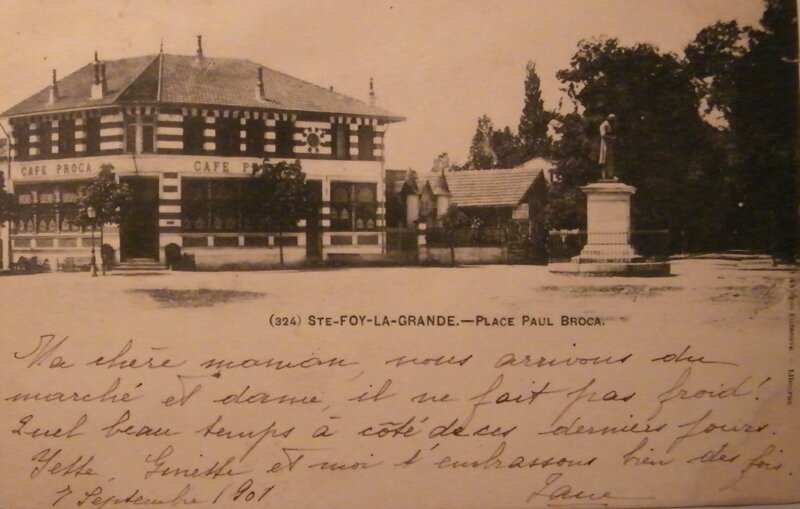 CAFE PROCA
CAFE P
(324) STE-FOY-LA-GRANDE.—PLACE PAUL BROCA.
Ma chère maman, nous arrivons du
marché et dame, il ne fait pas froid!
Quel beau temps à côté de ces derniers jours.
Yette, Ginette et moi t'embrassons bien des fois.
7 Septembre 1901